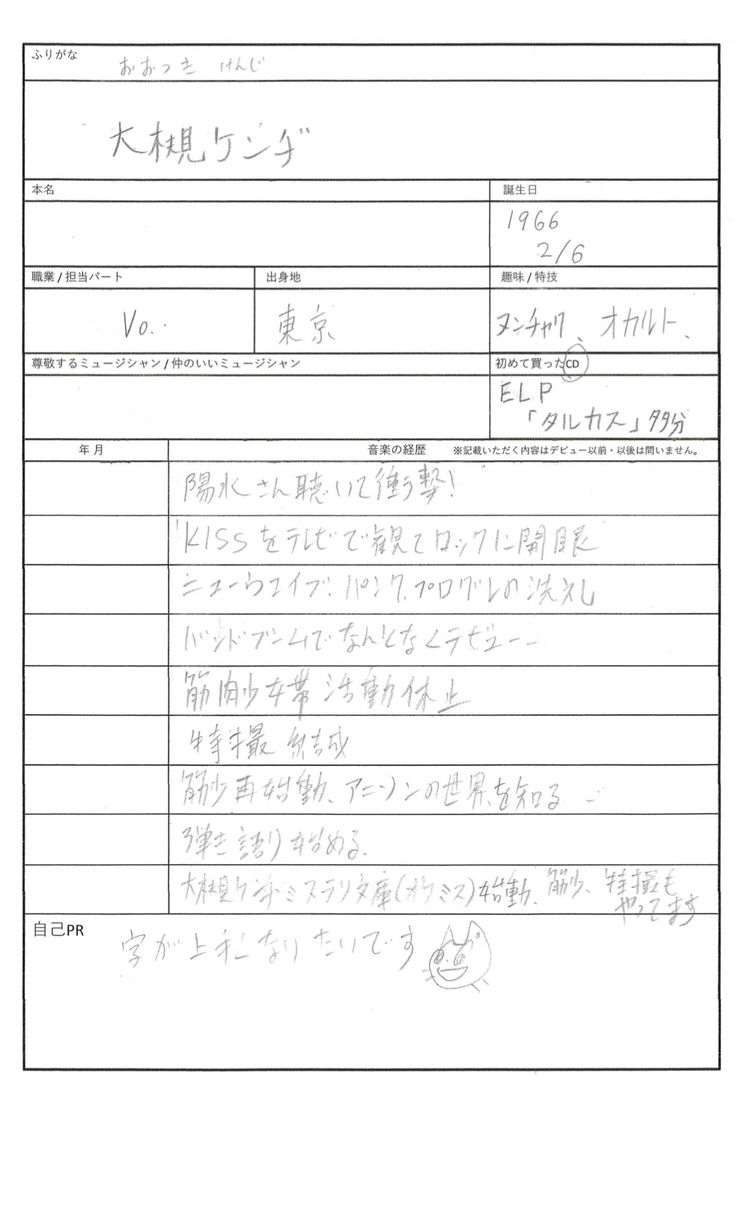 ふりがな
おおつき けんぢ
大槻ケンヂ
本名
誕生日
1966
2/6
職業 / 担当パート
出身地
趣味 / 特技
Vo.
東京
ヌンチャク、オカルト、
尊敬するミュージシャン / 仲のいいミュージシャン
初めて買ったCD
ELP
「タルカス」多分
年 月
音楽の経歴 ※記載いただく内容はデビュー以前・以後は問いません。
陽水さん聴いて衝撃!
KISSをテレビで観てロックに開眼
ニューウエイブ、パンク、プログレの洗礼
バンドブームでなんとなくデビュー
筋肉少女帯活動休止
特撮 結成
筋少再始動、アニソンの世界を知る
弾き語り始める
大槻ケンヂミステリ文庫(オケミス)始動、筋少、特撮も
やってます
自己PR
字が上手くなりたいです